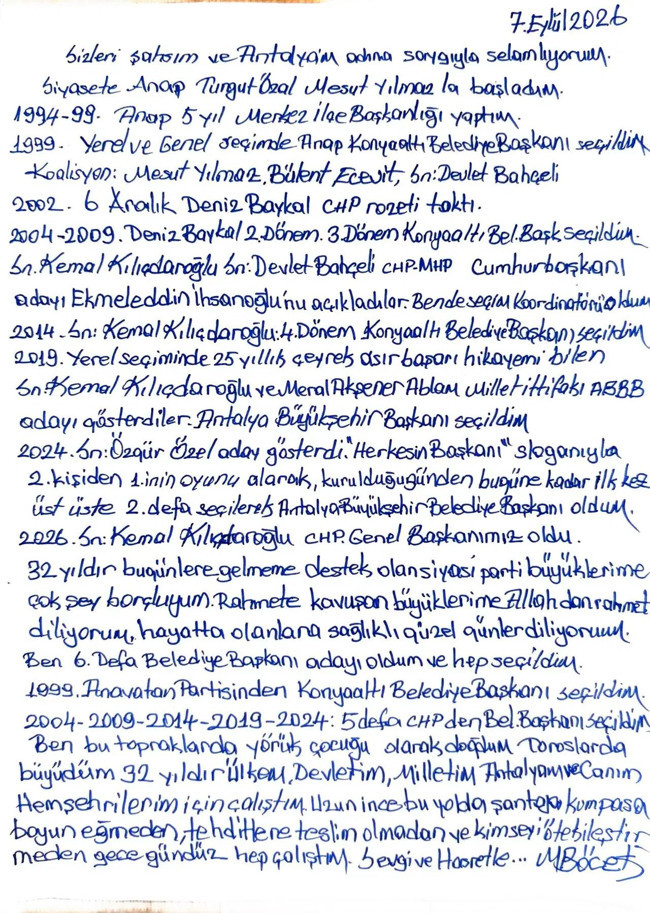 7.Eylül 2026
Sizleri şahsım ve Antalya'm adına saygıyla selamlıyorum.
Siyasete Anap Turgut Özal Mesut Yılmaz'la başladım.
1994-99. Anap 5 yıl Merkez ilçe Başkanlığı yaptım.
1999. Yerel ve Genel seçimde Anap Konyaaltı Belediye Başkanı seçildim
Koalisyon: Mesut Yılmaz, Bülent Ecevit, Sn: Devlet Bahçeli
2002. 6 Aralık Deniz Baykal CHP rozeti taktı.
2004-2009. Deniz Baykal 2. Dönem. 3. Dönem Konyaaltı Bel. Başk seçildim.
Sn. Kemal Kılıçdaroğlu Sn: Devlet Bahçeli CHP-MHP Cumhurbaşkanı
adayı Ekmeleddin İhsanoğlu'nu açıkladılar. Bende seçim koordinatörü oldum
2014. Sn: Kemal Kılıçdaroğlu: 4. Dönem Konyaaltı Belediye Başkanı seçildim
2019. Yerel seçiminde 25 yıllık çeyrek asır başarı hikayemi bilen
Sn: Kemal Kılıçdaroğlu ve Meral Akşener Ablam Millet ittifakı ABBB
adayı gösterdiler. Antalya Büyükşehir Başkanı seçildim
2024. Sn: Özgür Özel aday gösterdi. "Herkesin Başkanı" sloganıyla
2. kişiden 1.inin oyunu alarak, kurulduğugünden bugüne kadar ilk kez
üst üste 2. defa seçilerek Antalya Büyükşehir Belediye Başkanı oldum.
2026. Sn: Kemal Kılıçdaroğlu CHP. Genel Başkanımız oldu.
32 yıldır bugünlere gelmeme destek olan siyasi parti büyüklerime
çok şey borçluyum. Rahmete kavuşan büyüklerime Allah'dan rahmet
diliyorum, hayatta olanlara sağlıklı güzel günler diliyorum.
Ben 6. Defa Belediye Başkanı adayı oldum ve hep seçildim.
1999. Anavatan Partisinden Konyaaltı Belediye Başkanı seçildim.
2004-2009-2014-2019-2024: 5 defa CHP den Bel. Başkanı seçildim
Ben bu topraklarda yörük çocuğu olarak doğdum Toroslarda
büyüdüm 32 yıldır Ülkem, Devletim, Milletim Antalyam ve Canım
Hemşehrilerim için çalıştım. Uzun ince bu yolda şantaja kumpasa
boyun eğmeden, tehditlere teslim olmadan ve kimseyi ötekileştir
meden gece gündüz hep çalıştım. Sevgi ve Hasretle... MBöcek